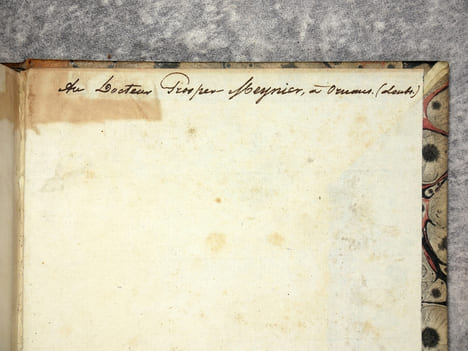 Au Docteur Prosper Meynier, à Ornans. (doubs.)